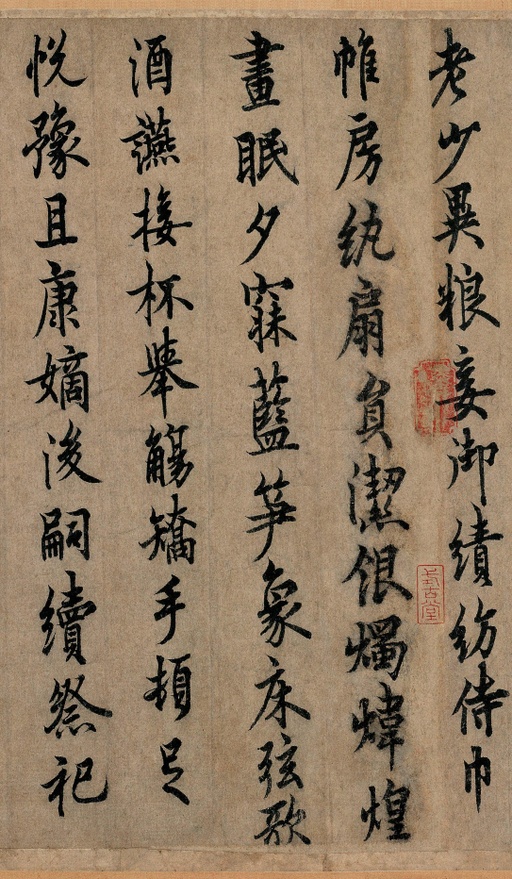 老少異粮妾御績紡侍巾
帷房紈扇員潔银燭煒煌
晝眠夕寐藍笋象床弦歌
酒讌接杯舉觴矯手頓足
悦豫且康嫡後嗣續祭祀
式古堂